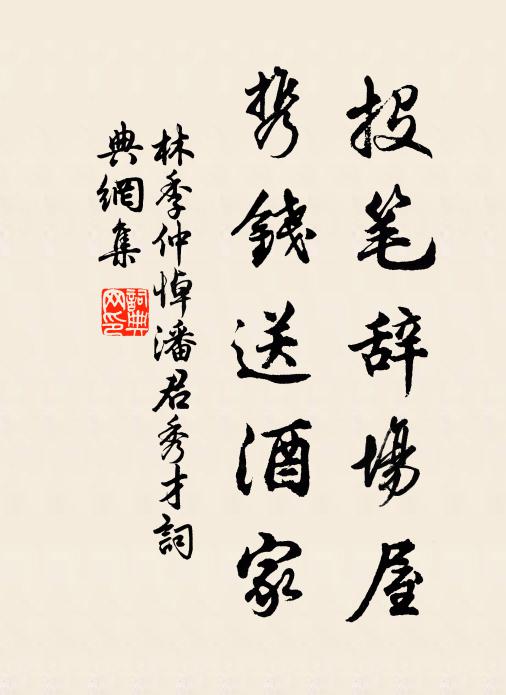 投笔辞場屋
携錢送酒家
林季仲悼潘君秀才詞
典網集
詞典網印